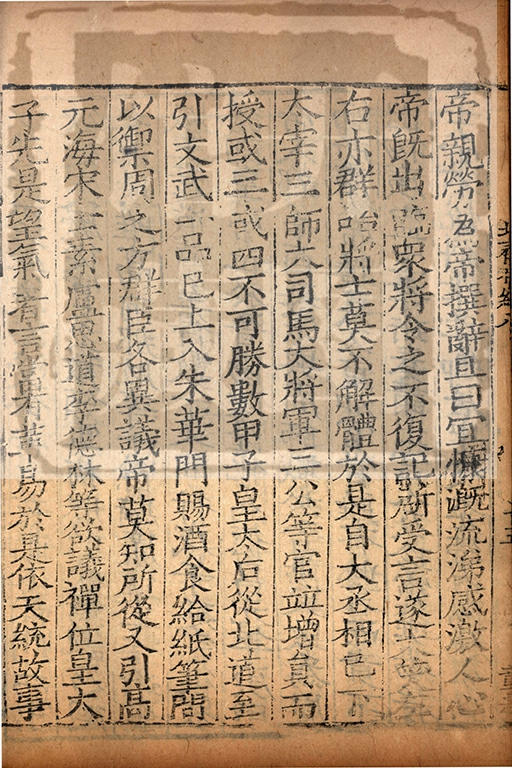 帝親勞為帝撰辭且曰宜慷慨流涕感激人心
帝旣出臨衆將令之不復記所受言遂大笑左
右亦群咍將士莫不解體於是自大丞相已下
太宰三師大司馬大將軍三公等官並增員而
授或三或四不可勝數甲子皇太后從北道至
引文武一品已上入朱華門賜酒食給紙筆問
以禦周之方群臣各異議帝莫知所從又引高
元海宋士素盧思道李德林等欲議禪位皇太
子先是望氣者言當有革易於是依天統故事